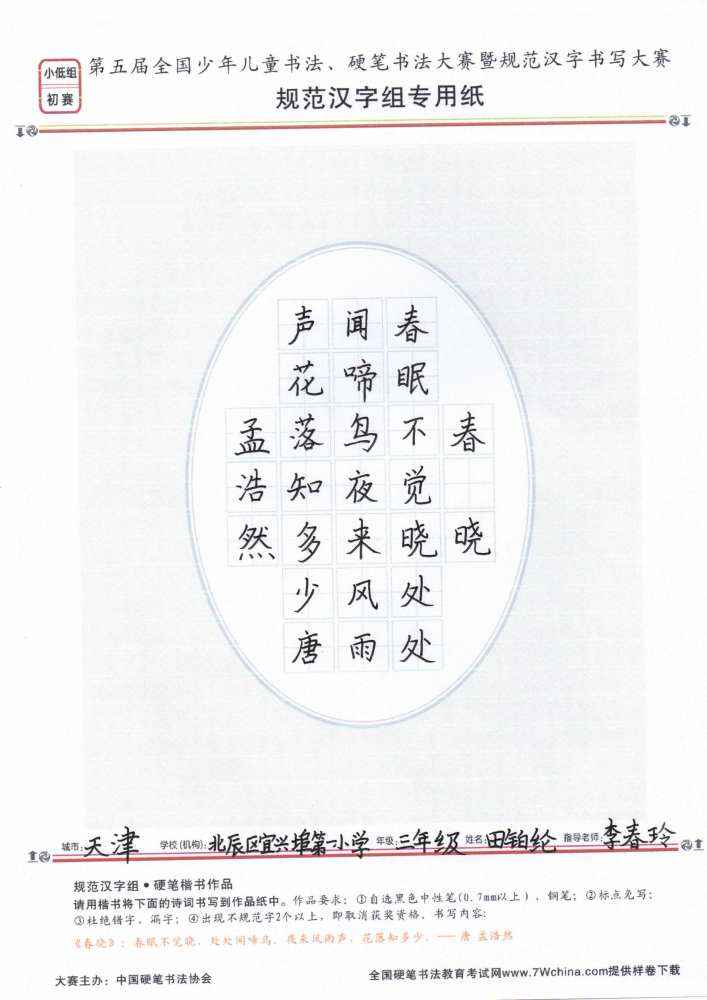 小低组
初赛
第五届全国少年儿童书法、硬笔书法大赛暨规范汉字书写大赛
规范汉字组专用纸
春晓
春眠不觉晓处处
闻啼鸟夜来风雨
声花落知多少唐
孟浩然
城市:天津 学校(机构):北辰区宜兴埠第一小学 年级:三年级 姓名:田铂纶 指导老师:李春玲
规范汉字组•硬笔楷书作品
请用楷书将下面的诗词书写到作品纸中。作品要求：①自选黑色中性笔(0.7mm以上）、钢笔；②标点免写；
③杜绝错字、漏字；④出现不规范字2个以上，即取消获奖资格。书写内容:
《春晓》：春眠不觉晓，处处闻啼鸟。夜来风雨声，花落知多少。——唐 孟浩然
大赛主办：中国硬笔书法协会
全国硬笔书法教育考试网www.7Wchina.com提供样卷下载